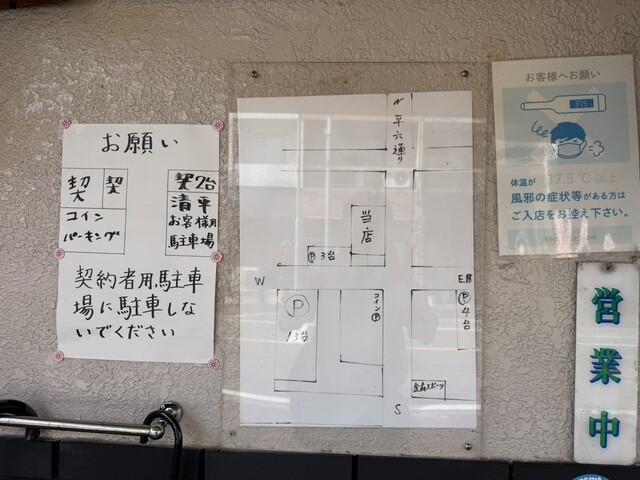 お願い
契
契
コイン
パーキング
契
7台
清平
お客様用
駐車場
契約者用駐車
場に駐車しな
いでください
N
平六通り
当店
Ⓟ 3台
W
E
Ⓟ
13台
コインⓅ
Ⓟ4台
S
お客様へお願い
37.5
体温が 37.5℃以上
風邪の症状等がある方は
ご入店をお控え下さい。
営業中